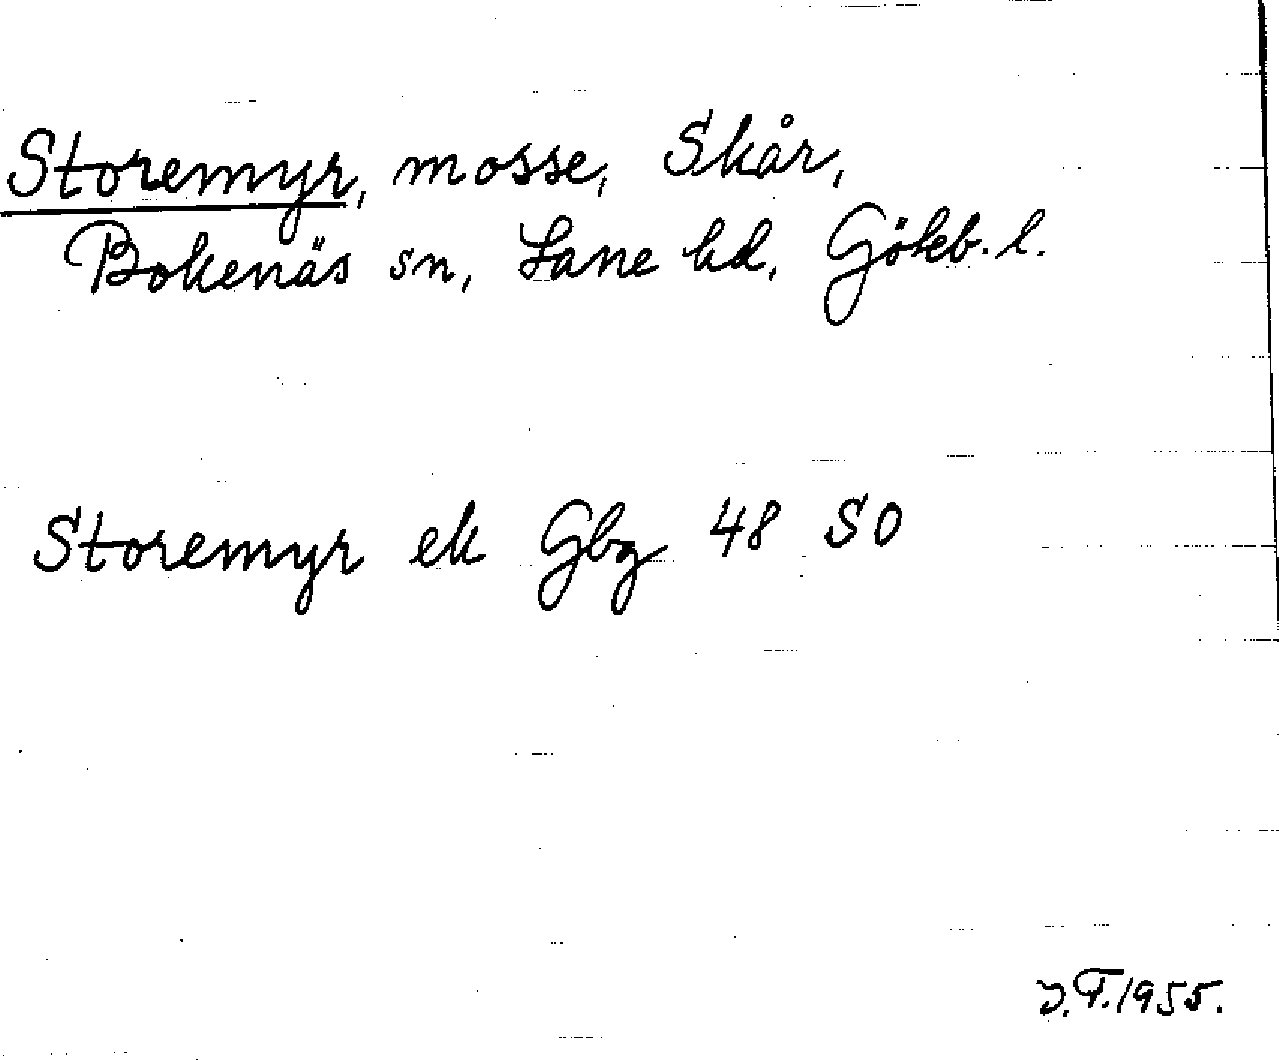 Storemyr, mosse, Skår,
Bokenäs sn, Lane hd, Gökb. l.
Storemyr ek Gbg 48 SO
J.T. 1955.